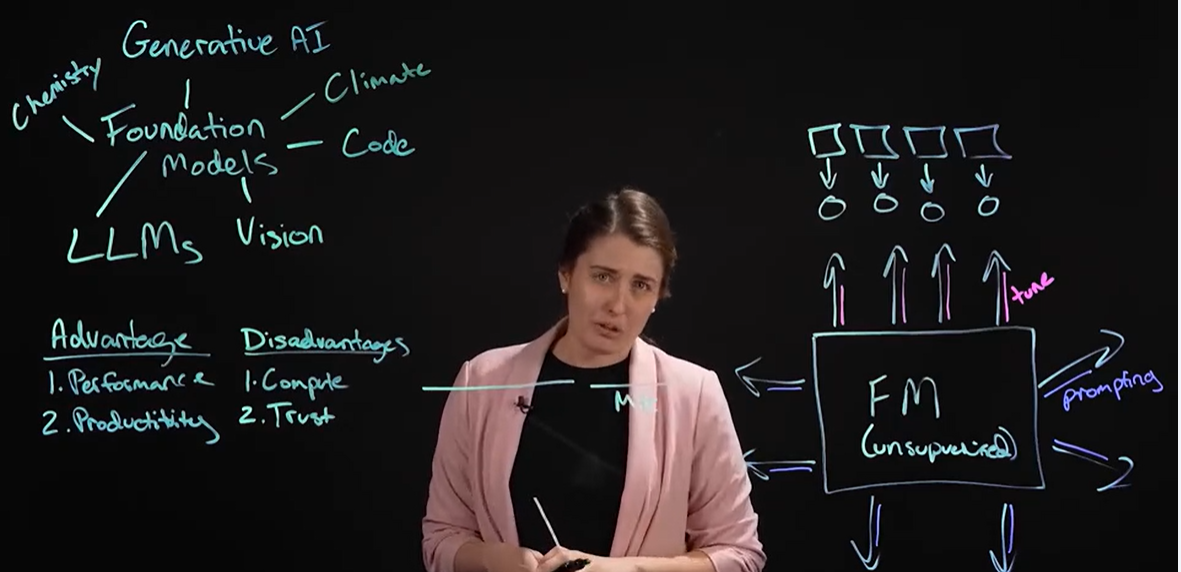 Generative AI
Chemistry
Climate
Foundation
Models
Code
LLMs
Vision
Advantage
1. Performance
2. Productitivity
Disadvantages
1. Compute
2. Trust
tune
FM
(unsupuervised)
prompting